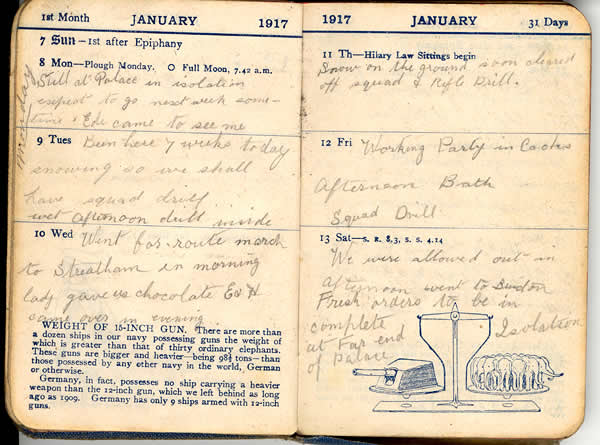 1st Month JANUARY 1917
7 Sun—1st after Epiphany
8 Mon—Plough Monday. O Full Moon, 7.42 a.m.
Monday
Still at Palace in isolation
expect to go next week some-
time. Edi came to see me
9 Tues Been here 7 weeks today
snowing so we shall
have squad drill
wet afternoon drill inside
10 Wed Went for route march
to Streatham in morning
lady gave us chocolate Ev H
came over in evening
WEIGHT OF 15-INCH GUN. There are more than
a dozen ships in our navy possessing guns the weight of
which is greater than that of thirty ordinary elephants.
These guns are bigger and heavier—being 98¾ tons—than
those possessed by any other navy in the world, German
or otherwise.
Germany, in fact, possesses no ship carrying a heavier
weapon than the 12-inch gun, which we left behind as long
ago as 1909. Germany has only 9 ships armed with 12-inch
guns.
1917 JANUARY 31 Days
11 Th—Hilary Law Sittings begin
Snow on the ground soon cleared
off squad & Rifle Drill.
12 Fri Working Party in
Afternoon Bath
Squad Drill
13 Sat—S. R. 8.3, S. S. 4.14
We were allowed out in
afternoon went to
Fresh orders to be in
complete Isolation
at Far end
of Palace